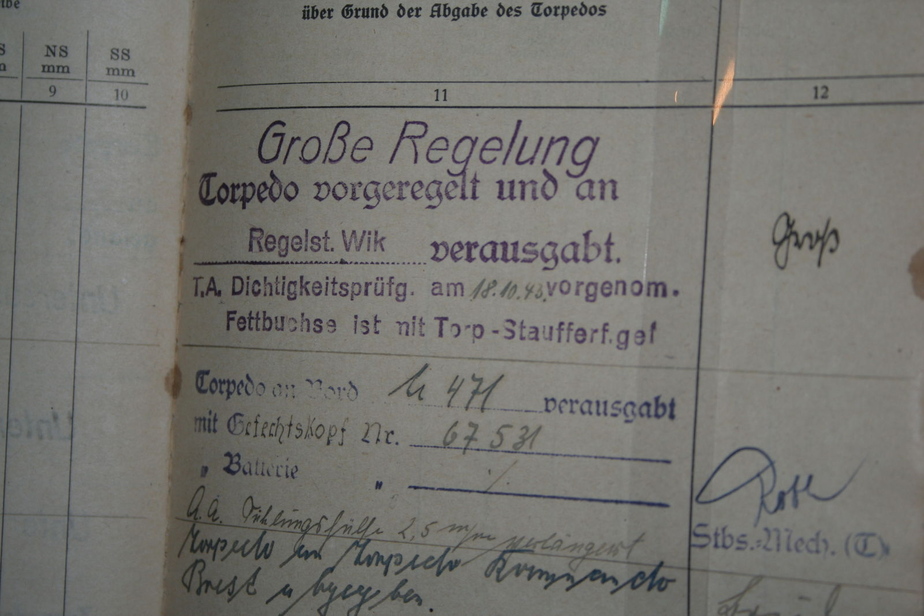 über Grund der Abgabe des Torpedos
NS SS
mm mm
9 10 11 12
Große Regelung
Torpedo vorgeregelt und an
Groß
Regelst. Wik verausgabt.
T.A. Dichtigkeitsprüfg. am 18.10.43. vorgenom.
Fettbuchse ist mit Torp-Staufferf. gef
Torpedo an Bord U 471 verausgabt
mit Gefechtskopf Nr. 67 531
„ Batterie „ /.
Roth
A.A. Fühlungshülle 2,5 mm verlängert
Stbs.-Mech. (T)
Torpedo an Torpedo Kommando
Brest abgegeben.